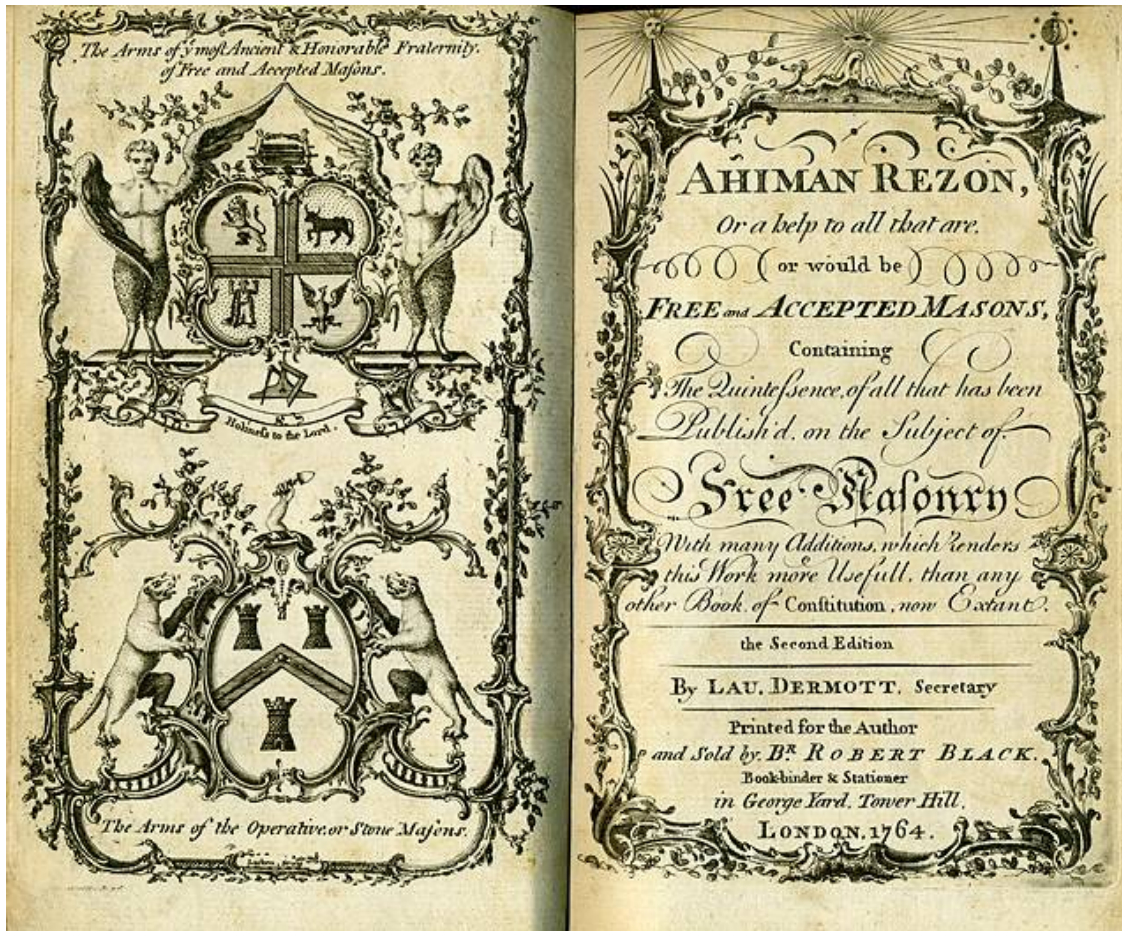 The Arms of yͤ moſt Ancient & Honorable Fraternity,
of Free and Accepted Maſons.
Holineſs to the Lord.
The Arms of the Operative, or Stone Maſons.
AHIMAN REZON,
Or a help to all that are,
(or would be)
FREE and ACCEPTED MASONS,
Containing
The Quinteſsence, of all that has been
Publish'd, on the Subject of
Free Maſonry
With many Additions, which Renders
this Work more Usefull, than any
other Book, of Conſtitution, now Extant.
the Second Edition
By LAU. DERMOTT, Secretary
Printed for the Author
and Sold by, Bᴿ ROBERT BLACK.
Book-binder & Stationer
in George Yard, Tower Hill,
LONDON, 1764.